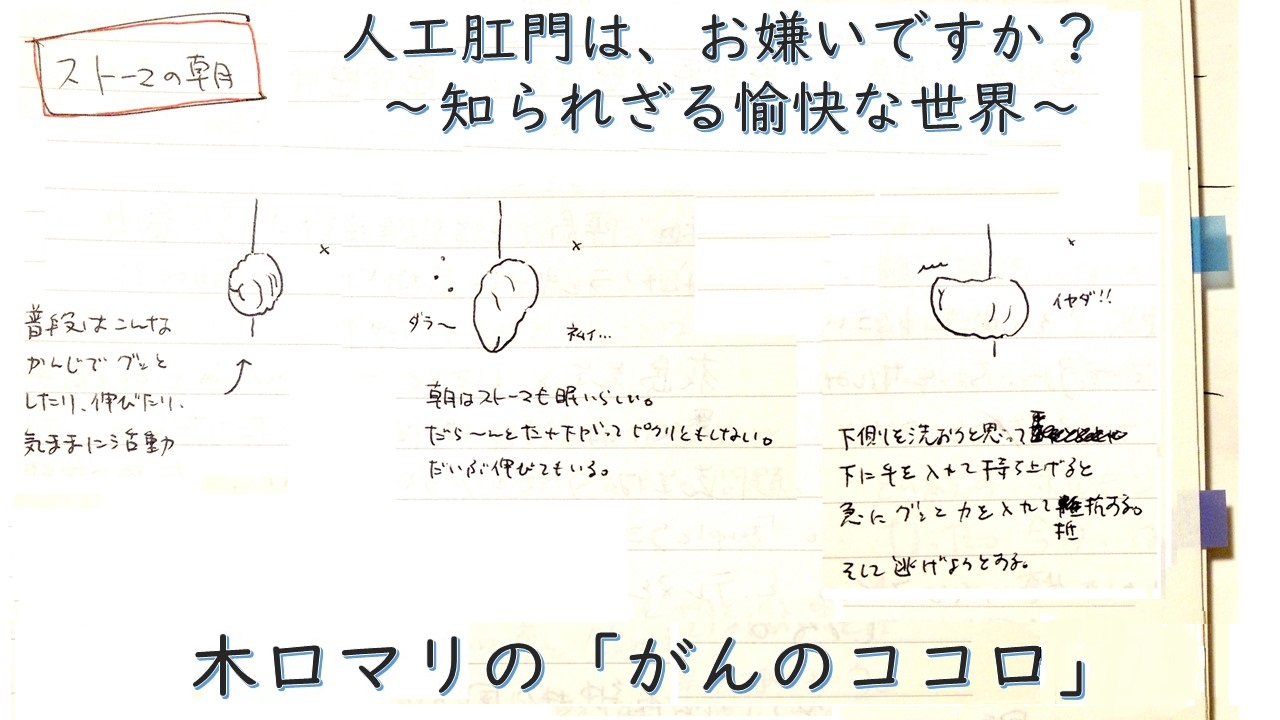 ストーマの朝
人工肛門は、お嫌いですか？
～知られざる愉快な世界～
普段はこんな
かんじで グンと
したり、伸びたり、
気ままに活動
ダラ～
ネムイ…
朝はストーマも眠いらしい。
だら～んとたれ下がって ピクリともしない。
だいぶ伸びてもいる。
イヤダ!!
下側を洗おうと思って
下に手を入れて持ち上げると
急に グンと 力を入れて抵抗する。
そして 逃げようとする。
木口マリの「がんのココロ」